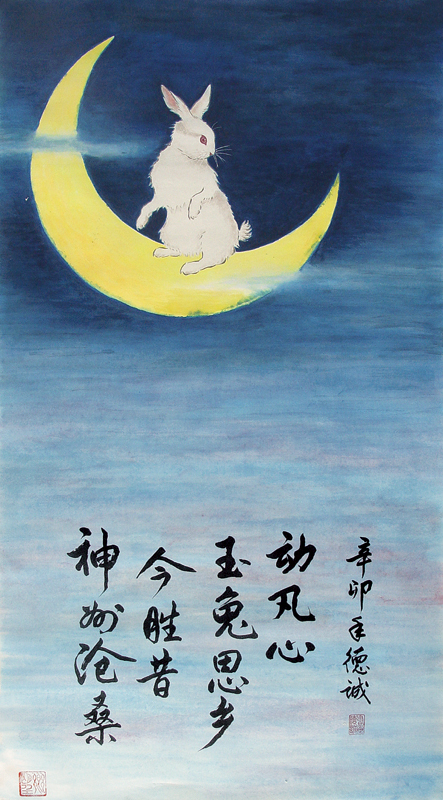 神州沧桑
今胜昔
玉兔思乡
动凡心
辛卯年德诚